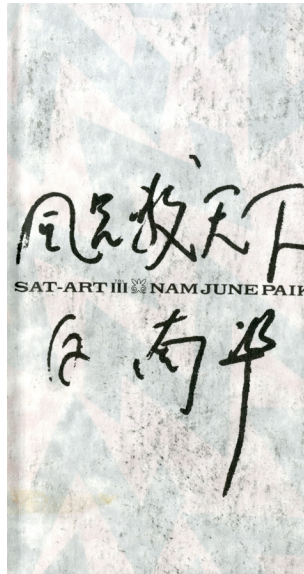 風呂敷天下
SAT-ART III NAM JUNE PAIK
白南準